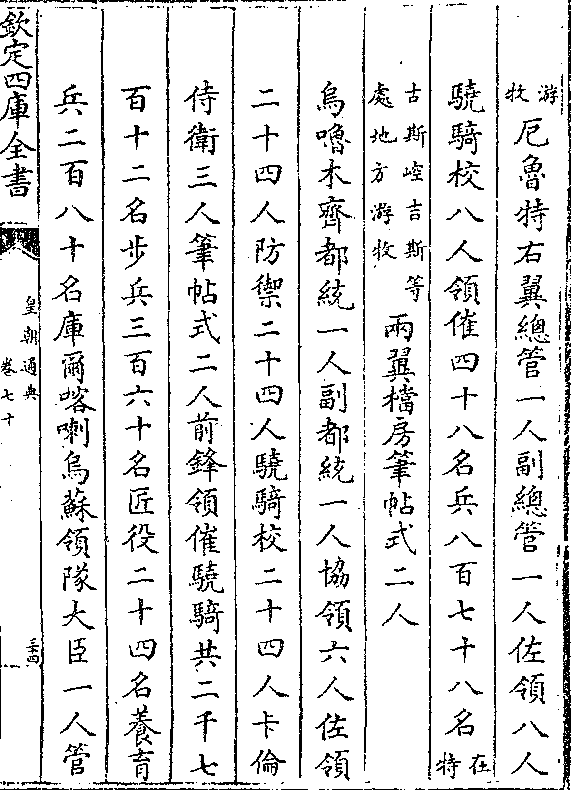 游牧厄魯特右翼總管一人副總管一人佐領八人
驍騎校八人領催四十八名兵八百七十八名在特
古斯崆吉斯等處地方游牧兩翼檔房筆帖式二人
烏嚕木齊都統一人副都統一人協領六人佐領
二十四人防禦二十四人驍騎校二十四人卡倫
侍衛三人筆帖式二人前鋒領催驍騎共二千七
百十二名步兵三百六十名匠役二十四名養育
兵二百八十名庫爾喀喇烏蘇領隊大臣一人管
欽定四庫全書
皇朝通典
卷七十